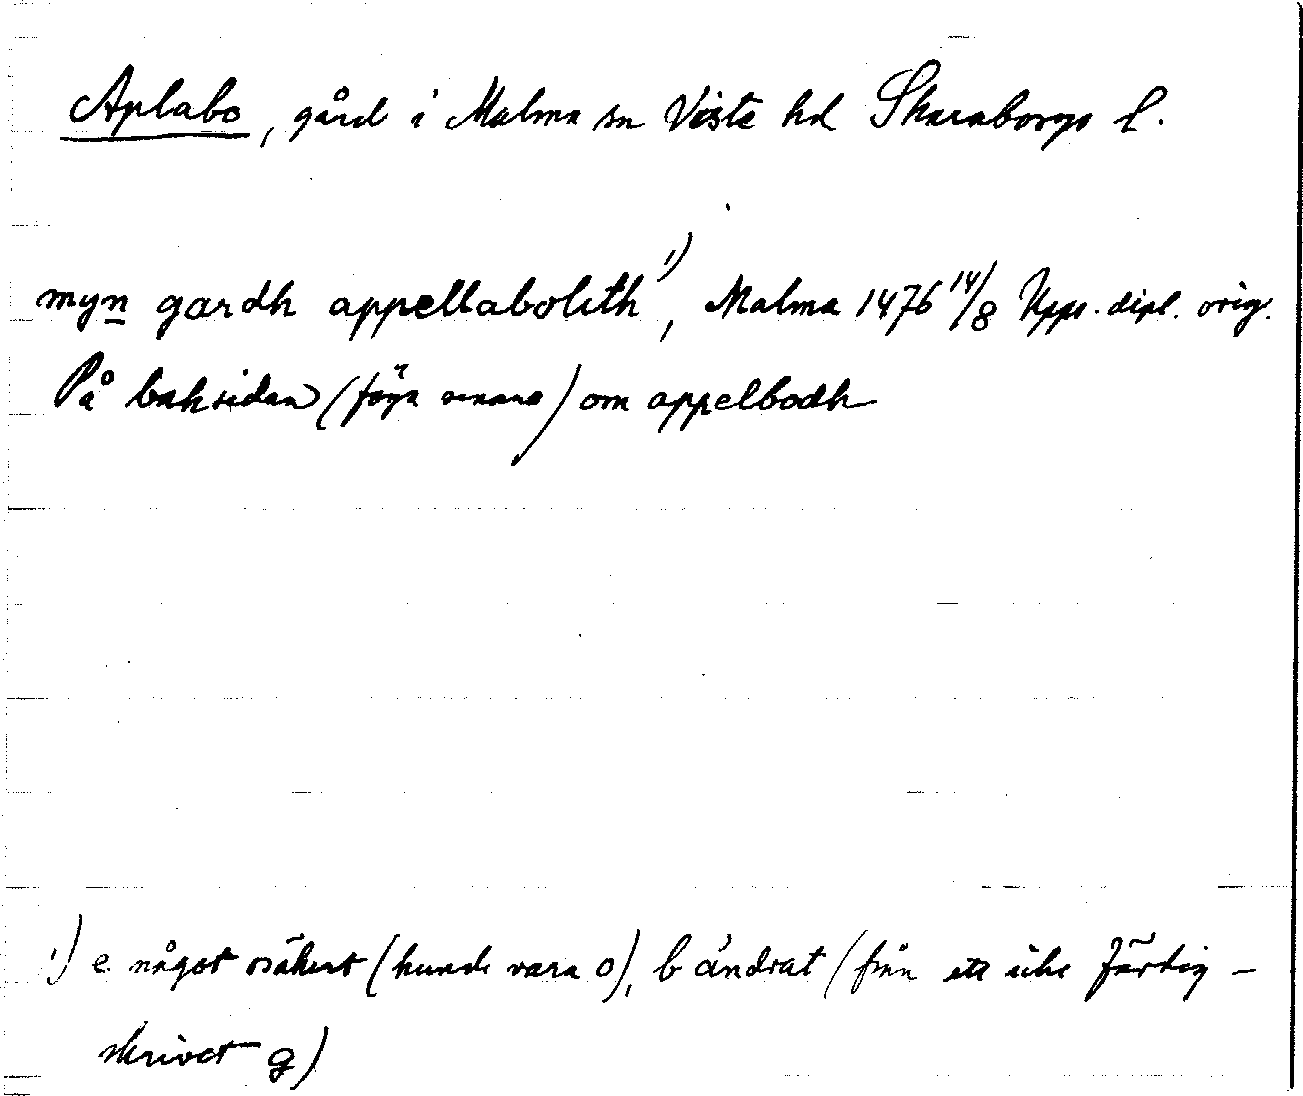 Aplabo, gård i Malma sn Viste hd Skaraborgs l.
myn gardh appellabolith ¹), Malma 1476 14/8 Upps. dipl. orig.
På baksidan (föga senare) om appelbodh
¹) e något osäkert (kunde vara o), b ändrat (från ett icke färdig-
skrivet g)